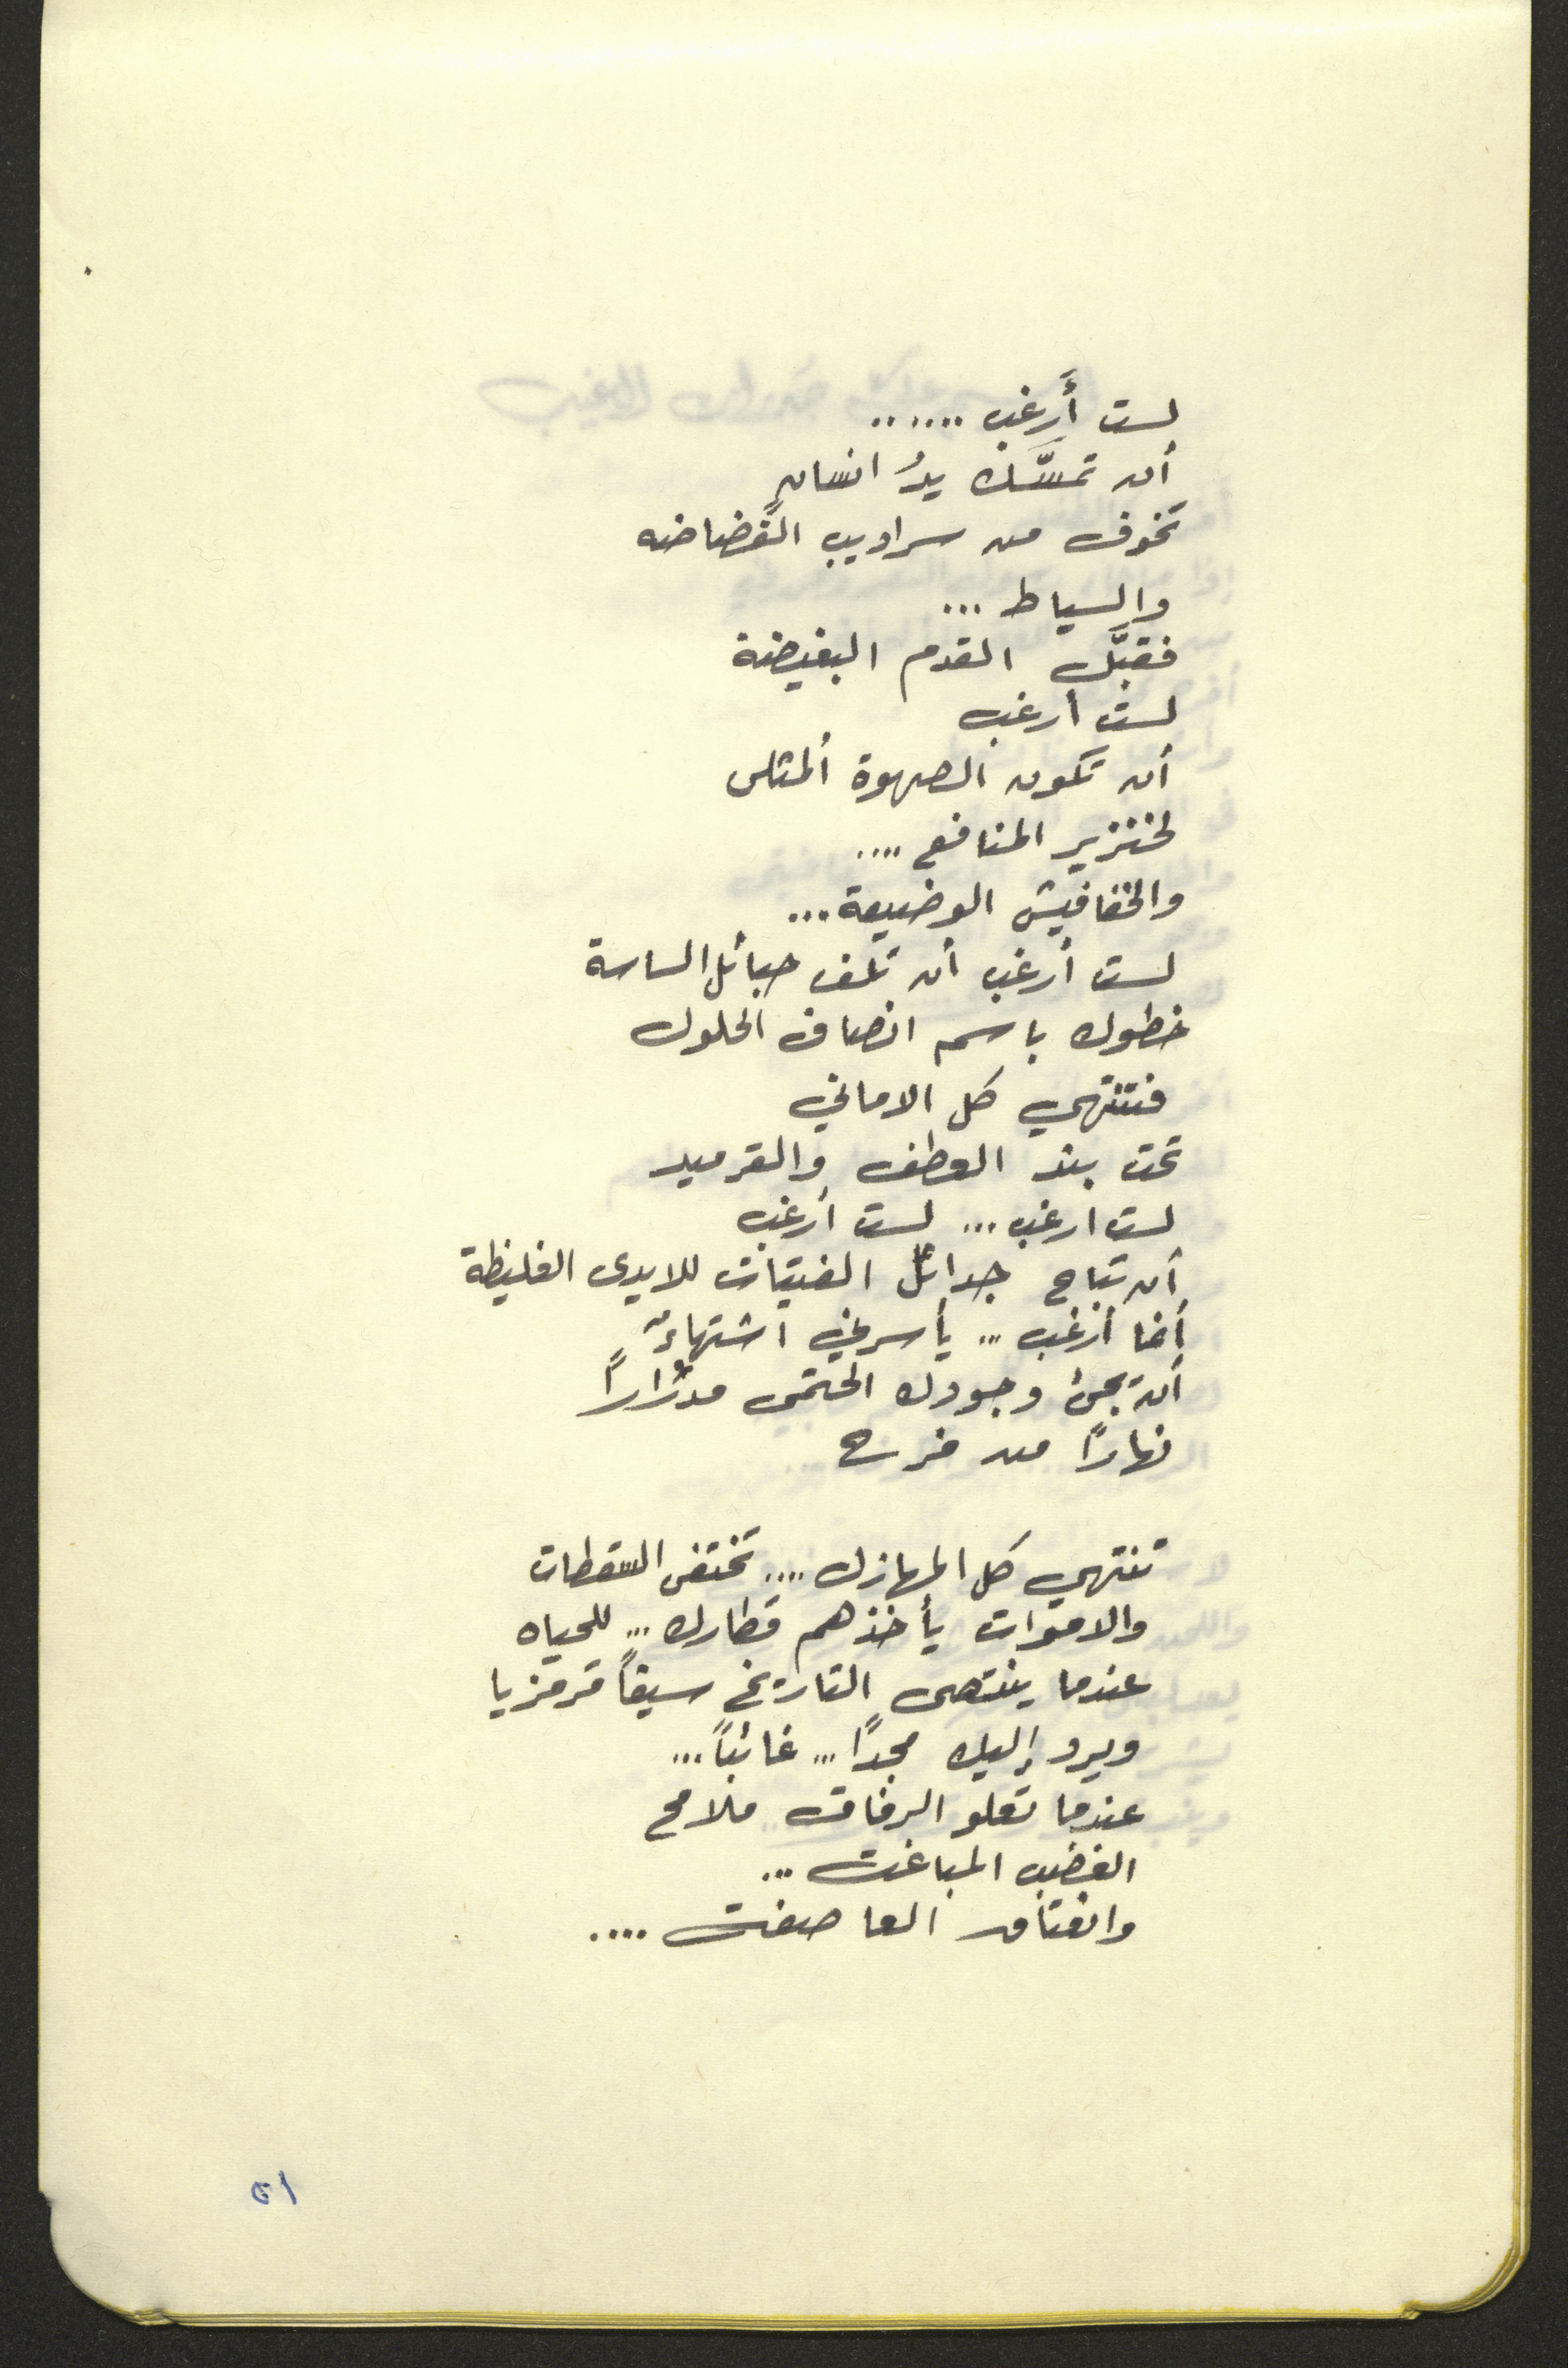 لست أَرغب ......
أن تمسَّك يدُ انسانٍ
تخوف من سراديب الفضاضه
والسياط ...
فقبَّل القدم البغيضة
لست أرغب
أن تكون الصهوة المثلى
لخنزير المنافع ....
والخفافيش الوضيعة...
لست أرغب أن تلف حبائل الساسة
خطوك باسم انصاف الحلول
فتنتهي كل الاماني
تحت بند العطف والقرميد
لست ارغب ... لست أرغب
أن تباح جدائل الفتيات للايدى الغليظة
أنما أرغب ... يأسرني اشتهاءٌ
أن يجئ وجودك الحتمى مدراراً
نهاراً من فرح
تنتهي كل المهازل .... تختفى السقطات
والاموات يأخذهم قطارك ... للحياه
عندما ينتهى التاريخ سيفاً قرمزيا
ويرد إليك مجداً ... غائباً...
عندما تعلو الرفاق ملامح
الغضب المباغت ...
وانعتاق العاصفت ....
٥١